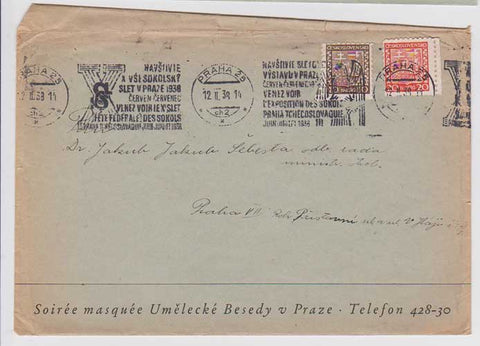 ČESKOSLOVENSKO ČESKOSLOVENSKO
20
PRAHA 25
12 II.38-14
ch2
NAVŠTIVTE
X VŠESOKOLSKÝ
SLET V PRAZE 1938
ČERVEN ČERVENEC
VENEZ VOIR le X SLET
(FÊTE FÉDÉRALE) DES SOKOLS
PRAHA 25
12 II.38-14
ch2
NAVŠTIVTE SLET
VÝSTAVU V PRAZE
ČERVEN ČERVENEC
VENEZ VOIR
L'EXPOSITION DES SOKOL
PRAHA TCHÉCOSLOVAQUIE
Dr. Jakub Jakub Šebesta odb. rada
Praha VII
Soirée masquée Umělecké Besedy v Praze · Telefon 428-30